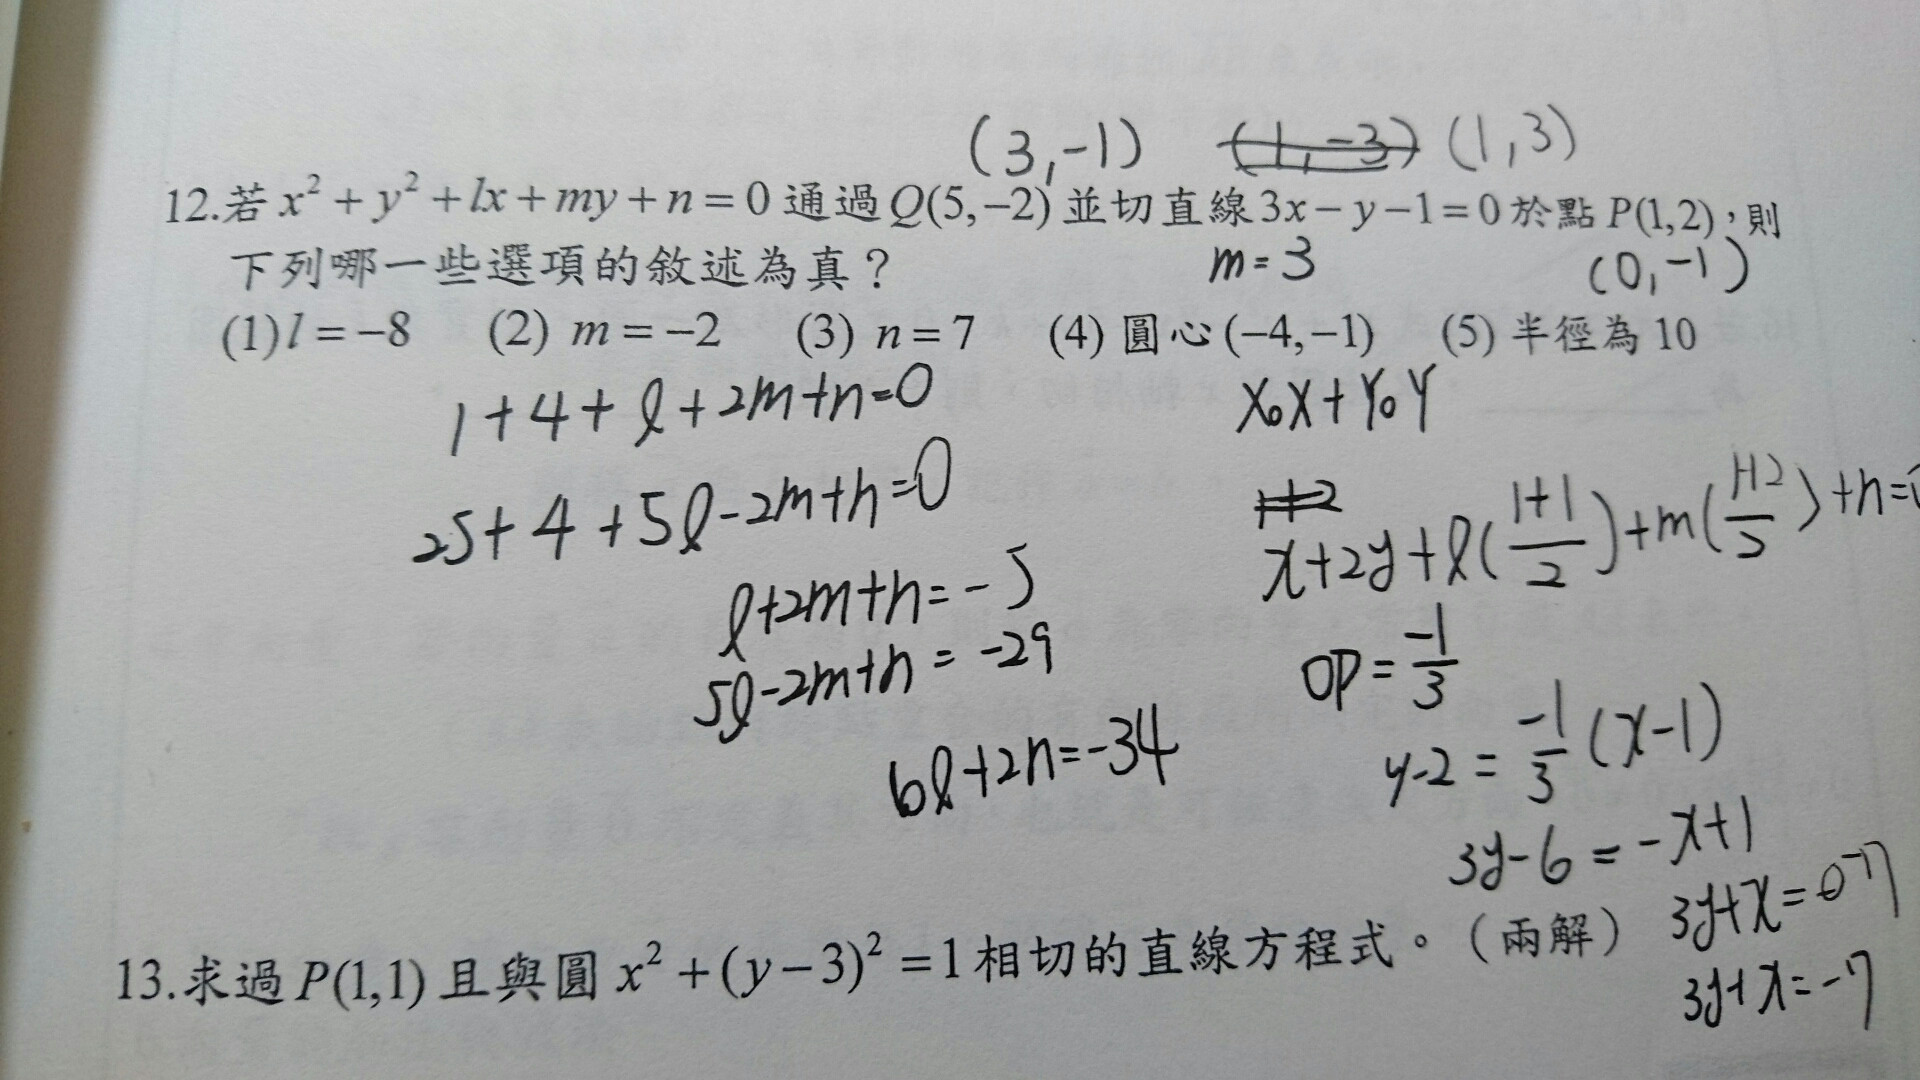 (3,-1) (1,-3) (1,3)
12.若 x² + y² + lx + my + n = 0 通過 Q(5,−2) 並切直線 3x − y − 1 = 0 於點 P(1,2)，則
下列哪一些選項的敘述為真？
m=3 (0,-1)
(1) l = −8 (2) m = −2 (3) n = 7 (4) 圓心 (−4,−1) (5) 半徑為 10
1+4+l+2m+n=0
x₀x+y₀y
25+4+5l-2m+n=0
1+2
x+2y+l(1+1/2)+m(1+2/2)+n=0
l+2m+n=-5
5l-2m+n=-29
OP=-1/3
6l+2n=-34
y-2=-1/3(x-1)
3y-6=-x+1
3y+x=
3y+x=-7
13.求過 P(1,1) 且與圓 x² + (y − 3)² = 1 相切的直線方程式。（兩解）